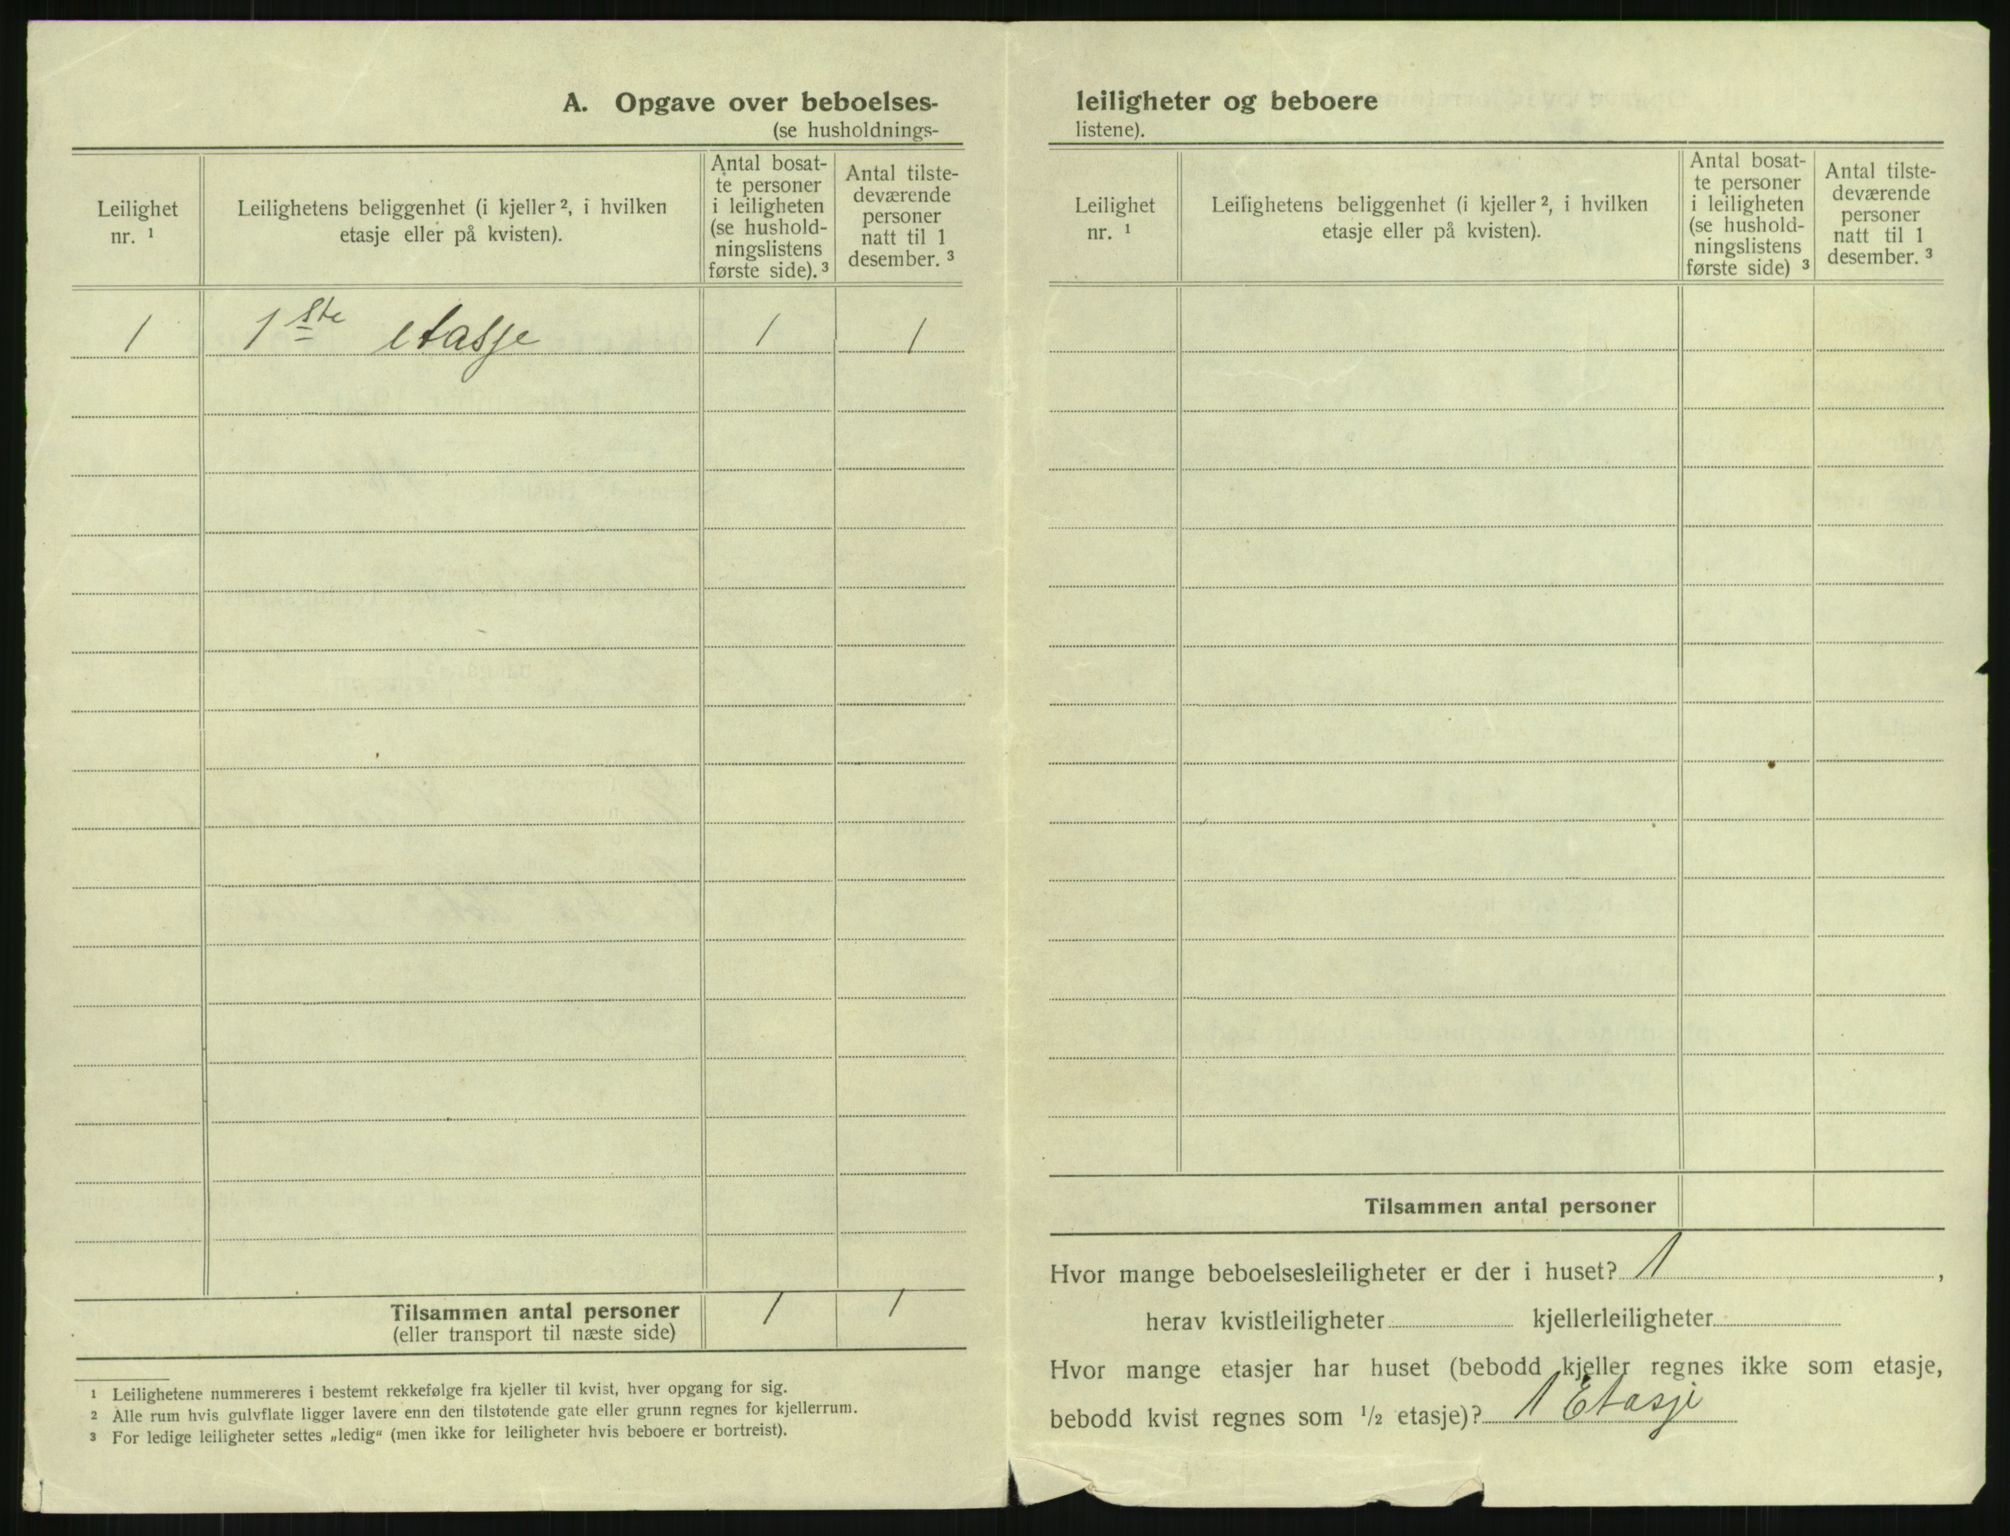 A. Opgave over beboelses-
(se husholdnings-
Leilighet
nr. ¹
Leilighetens beliggenhet (i kjeller ², i hvilken
etasje eller på kvisten).
Antal bosat-
te personer
i leiligheten
(se hushold-
ningslistens
første side). ³
Antal tilste-
deværende
personer
natt til 1
desember. ³
1 1 ste etasje 1 1
Tilsammen antal personer 1 1
(eller transport til næste side)
¹ Leilighetene nummereres i bestemt rekkefølge fra kjeller til kvist, hver opgang for sig.
² Alle rum hvis gulvflate ligger lavere enn den tilstøtende gate eller grunn regnes for kjellerrum.
³ For ledige leiligheter settes „ledig“ (men ikke for leiligheter hvis beboere er bortreist).
leiligheter og beboere
listene).
Leilighet
nr. ¹
Leilighetens beliggenhet (i kjeller ², i hvilken
etasje eller på kvisten).
Antal bosat-
te personer
i leiligheten
(se hushold-
ningslistens
første side) ³
Antal tilste-
deværende
personer
natt til 1
desember. ³
Tilsammen antal personer
Hvor mange beboelsesleiligheter er der i huset? 1 ,
herav kvistleiligheter kjellerleiligheter
Hvor mange etasjer har huset (bebodd kjeller regnes ikke som etasje,
bebodd kvist regnes som ½ etasje)? 1 Etasje